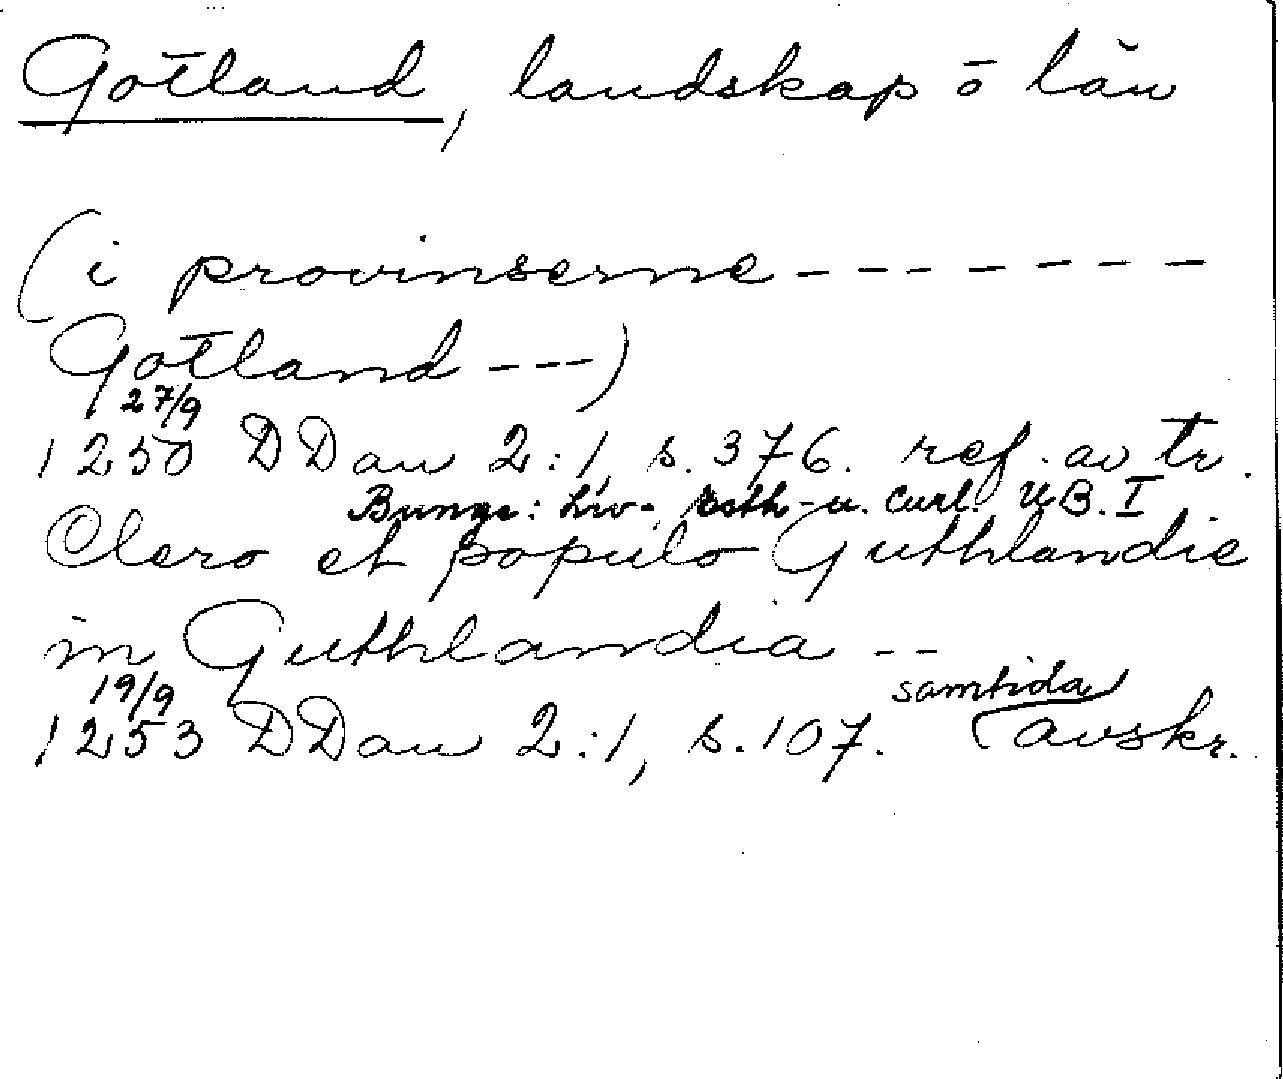 Gotland, landskap o län
(i provinserne - - - - - - -
Gotland - - -)
27/9
1250 DDan 2:1, s. 376. ref. av tr.
Bunge: Liv-, Esth- u. Curl. UB. I
Clero et populo Guthlandie
in Guthlandia - -
19/9 samtida
1253 DDan 2:1, s. 107. avskr.